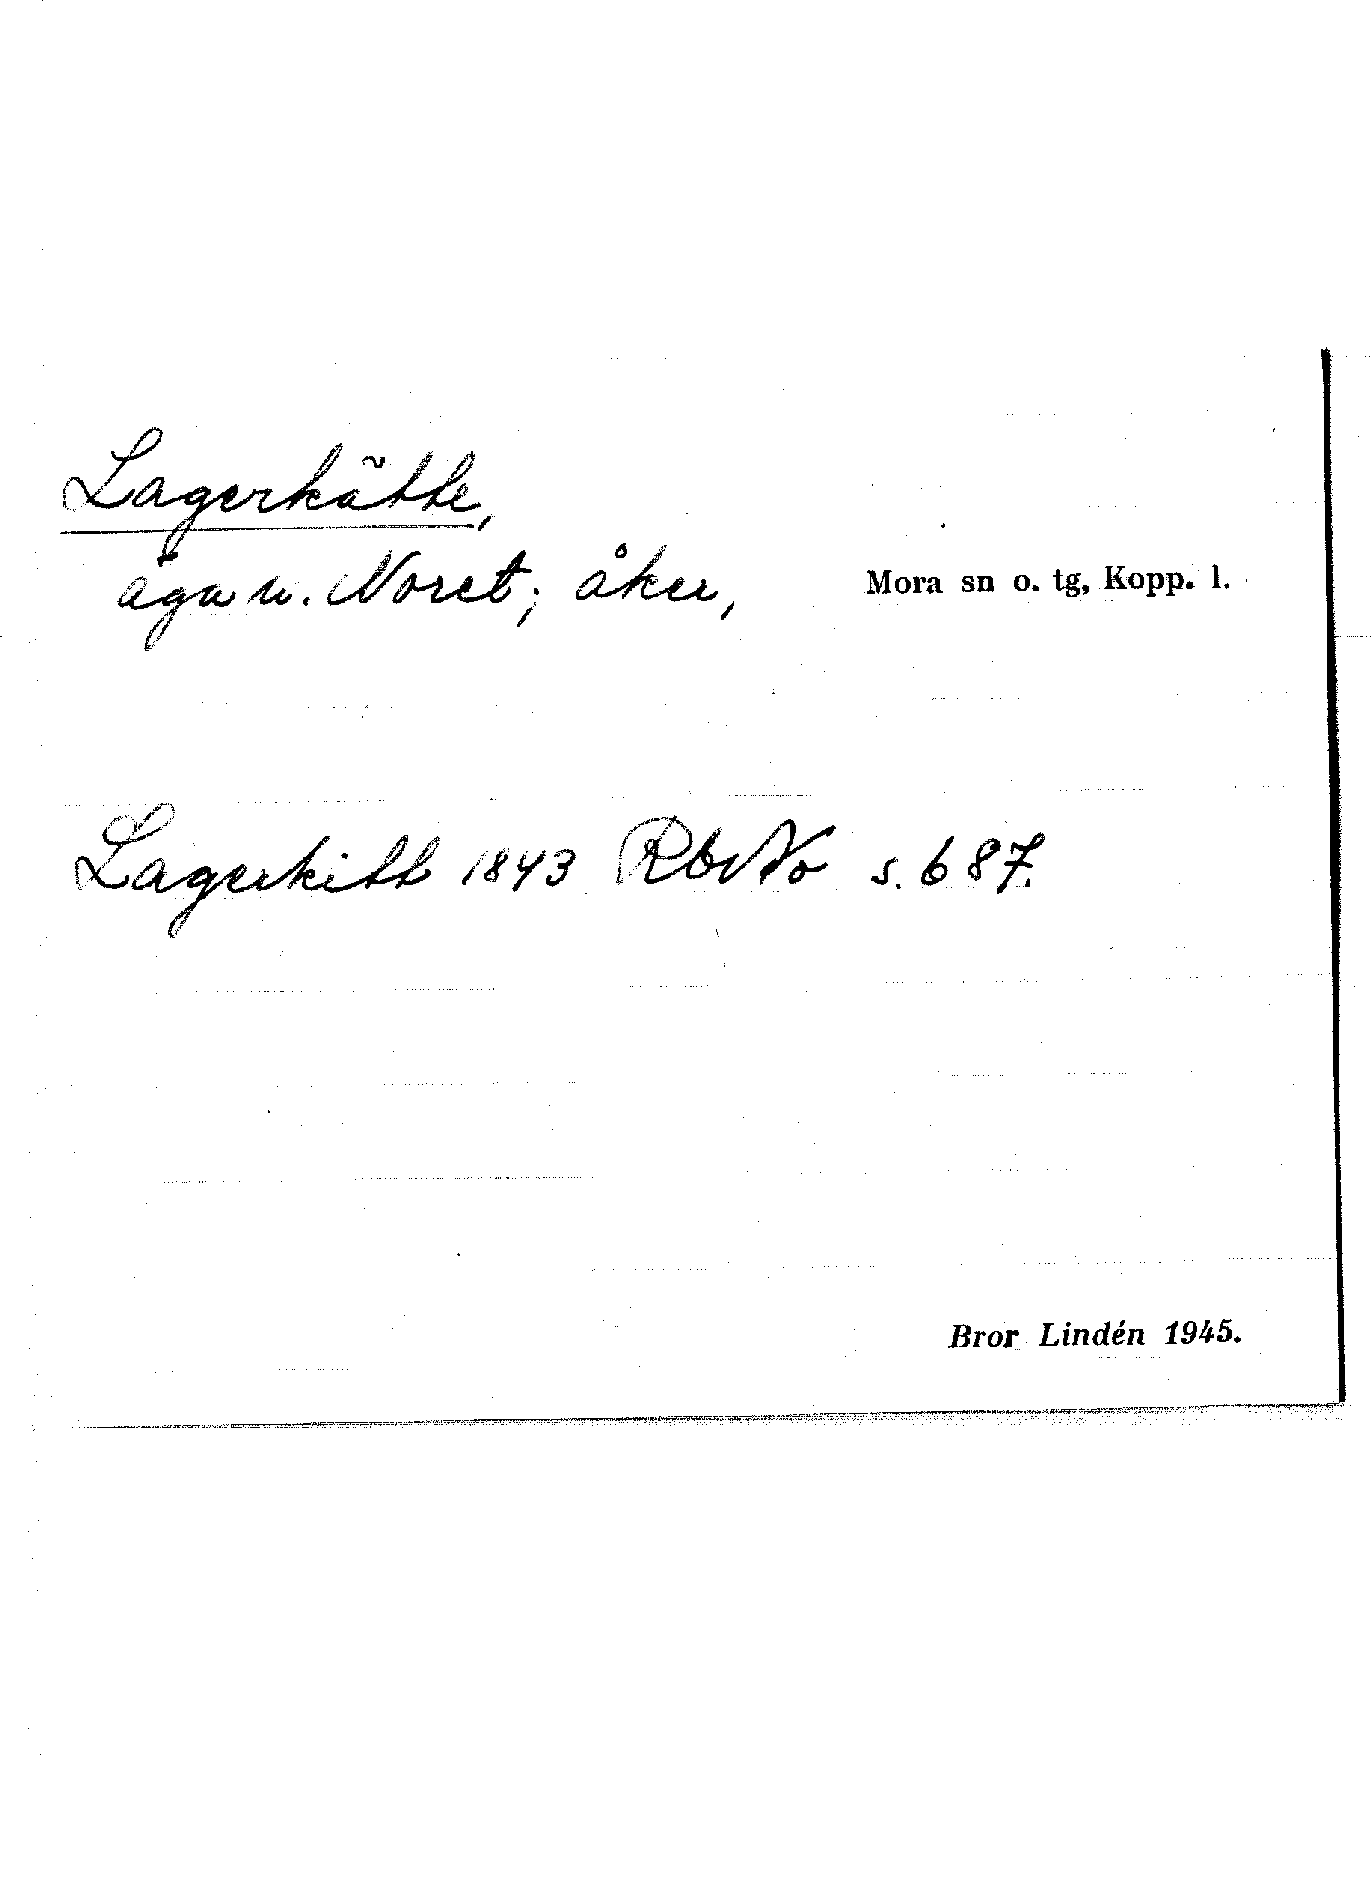 Lagerkätte,
äga u. Noret; åker, Mora sn o. tg, Kopp. l.
Lagerkitt 1843 RbNo s. 687.
Bror Lindén 1945.